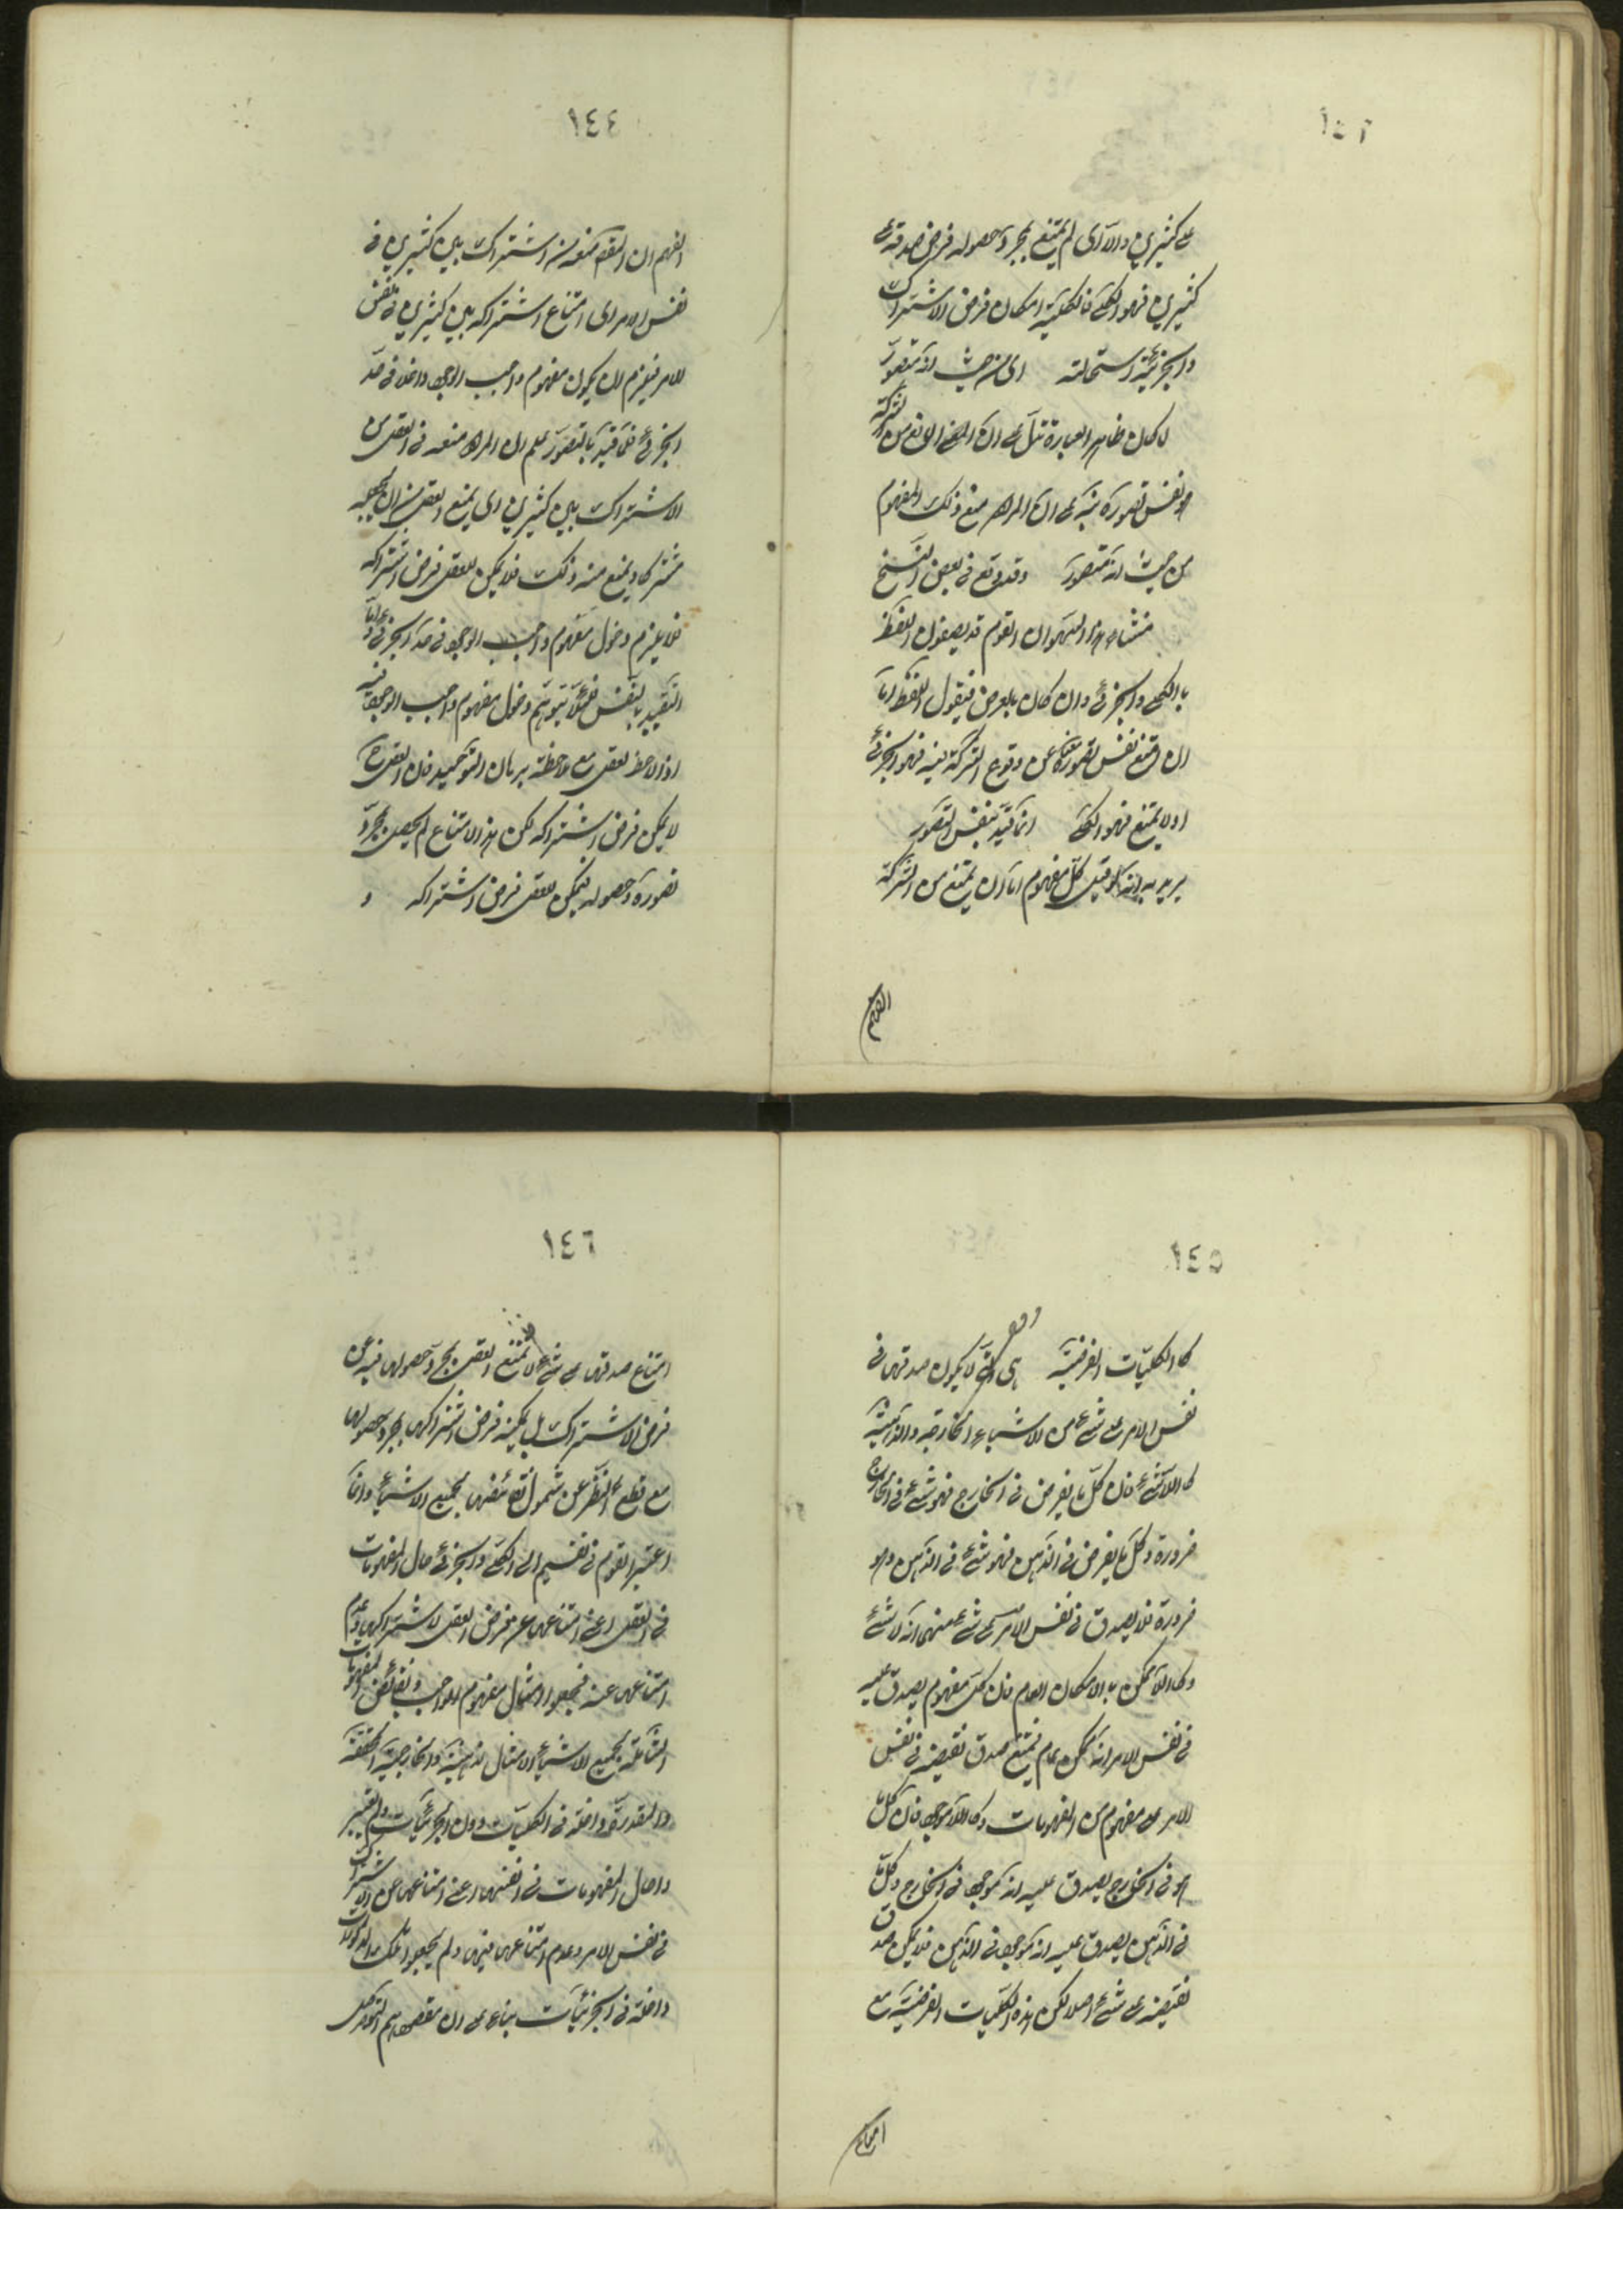 ١٤٣
على كثيرين والا اى لم يمتنع بمجرد حصوله فرض صدقه على
كثيرين فهو الكلى فالكلية امكان فرض الاشتراك
والجزئية استحالته اى من حيث انه متصور
لما كان ظاهر العبارة تدل على ان المانع من الشركة
هو نفس تصوره نبه على ان المراد منع ذلك المفهوم
من حيث انه متصور وقد وقع فى بعض النسخ
منشاء هذا السهو ان القوم قد يصفون اللفظ
بالكلى والجزئى وان كان بالعرض فيقول اللفظ اما
ان يمنع نفس تصور معناه عن وقوع الشركة فيه فهو الجزئى
او لا يمنع فهو الكلى انما قيد بنفس التصور
يريد به انه لو قيل كل مفهوم اما ان يمتنع من الشركة
الفهم
١٤٤
الفهم ان المقصود منعه من اشتراك بين كثيرين فى
نفس الامر اى امتناع اشتراكه بين كثيرين فى نفس
الامر فيلزم ان يكون مفهوم واجب الوجود داخلا فى حد
الجزئى فلما قيد بالتصور علم ان المراد منعه فى العقل من
الاشتراك بين كثيرين اى يمنع العقل من ان يجعله
مشتركا ويمنع منه ذلك فلا يمكن للعقل فرض اشتراكه
فلا يلزم دخول مفهوم واجب الوجود فى حد الجزئى واما
التقييد بالنفس فلئلا يتوهم دخول مفهوم واجب الوجود فيه
اذا لاحظه العقل مع ملاحظة برهان التوحيد فان العقل ح
لا يمكن فرض اشتراكه لكن هذا الامتناع لم يحصل بمجرد
تصوره وحصوله فيمكن للعقل فرض اشتراكه و
١٤٥
كالكليات الفرضية هى التى لا يكون صدقها فى
نفس الامر على شئ من الاشياء الخارجية والذهنية
كاللاشئ فان كل ما يفرض فى الخارج فهو شئ فى الخارج
ضرورة وكل ما يفرض فى الذهن فهو شئ فى الذهن
ضرورة فلا يصدق فى نفس الامر على شئ منهما انه لا شئ
وكاللاممكن بالامكان العام فان كل مفهوم يصدق عليه
فى نفس الامر انه ممكن عام فيمتنع صدق نقيضه فى نفس
الامر على مفهوم من المفهومات وكاللاموجود فان كل ما
هو فى الخارج يصدق عليه انه موجود فى الخارج وكل ما
فى الذهن يصدق عليه انه موجود فى الذهن فلا يمكن صدق
نقيضه على شئ اصلا لكن هذه الكليات الفرضية مع
امتناع
١٤٦
امتناع صدقها على شئ لا يمتنع العقل بمجرد حصولها فيه عن
فرض الاشتراك بل يمكنه فرض اشتراكها بمجرد حصولها
مع قطع النظر عن شمول نقائضها بجميع الاشياء وانما
اعتبر القوم فى تقسيم الى الكلى والجزئى حال المفهومات
فى العقل اعنى امتناعها عن فرض العقل لاشتراكها وعدم
امتناعها عنه فجعلوا امثال مفهوم الواجب ونقائض المفهومات
الشاملة بجميع الاشياء الذهنية والخارجية المحققة
والمقدرة داخلة فى الكليات دون الجزئيات ولم يعتبر
واحال المفهومات فى انفسها اعنى امتناعها عن الاشتراك
فى نفس الامر وعدم امتناعها فيها ولم يجعلوا تلك
داخلة فى الجزئيات بناء على ان مقصودهم التوصل